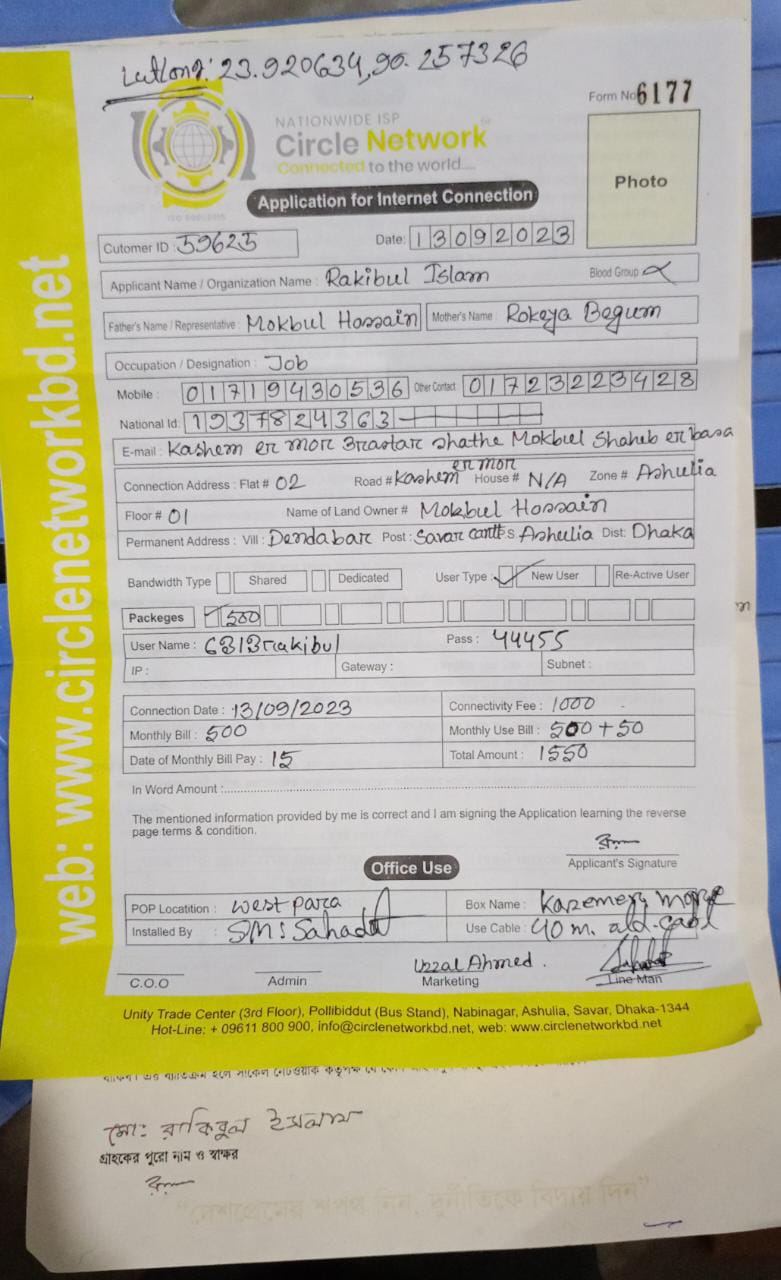 Latlong: 23.920634,90.257326
Form No 6177
NATIONWIDE ISP
Circle Network
Connected to the world....
Photo
ISO 9001:2015
Application for Internet Connection
Cutomer ID : 59625 Date: 13092023
Applicant Name / Organization Name : Rakibul Islam Blood Group :
Father's Name / Representative : Mokbul Hossain Mother's Name : Rokeya Begum
Occupation / Designation : Job
Mobile : 01719430536 Other Contact : 01723223428
National Id: 1937824363
E-mail : Kashem er mor 3rastar shathe Mokbul Shaheb er basa
Connection Address : Flat # 02 Road # Kashem er mor House # N/A Zone # Ashulia
Floor # 01 Name of Land Owner # Mokbul Hossain
Permanent Address : Vill : Dendabar Post : Savar cantt S Ashulia Dist: Dhaka
Bandwidth Type Shared Dedicated User Type : New User Re-Active User
Packeges 500
User Name : 6313rakibul Pass : 44455
IP : Gateway : Subnet :
Connection Date : 13/09/2023 Connectivity Fee : 1000
Monthly Bill : 500 Monthly Use Bill : 500+50
Date of Monthly Bill Pay : 15 Total Amount : 1550
In Word Amount :
The mentioned information provided by me is correct and I am signing the Application learning the reverse
page terms & condition.
Applicant's Signature
Office Use
POP Locatition : west para Box Name :
Installed By : SM: Sahadat Use Cable : 40 m.
Uzzal Ahmed.
C.O.O Admin Marketing Line Man
Unity Trade Center (3rd Floor), Pollibiddut (Bus Stand), Nabinagar, Ashulia, Savar, Dhaka-1344
Hot-Line: + 09611 800 900, info@circlenetworkbd.net, web: www.circlenetworkbd.net
web: www.circlenetworkbd.net
মো: রাকিবুল ইসলাম
গ্রাহকের পুরো নাম ও স্বাক্ষর
"দেশপ্রেমের শপথ নিন, দুর্নীতিকে বিদায় দিন"